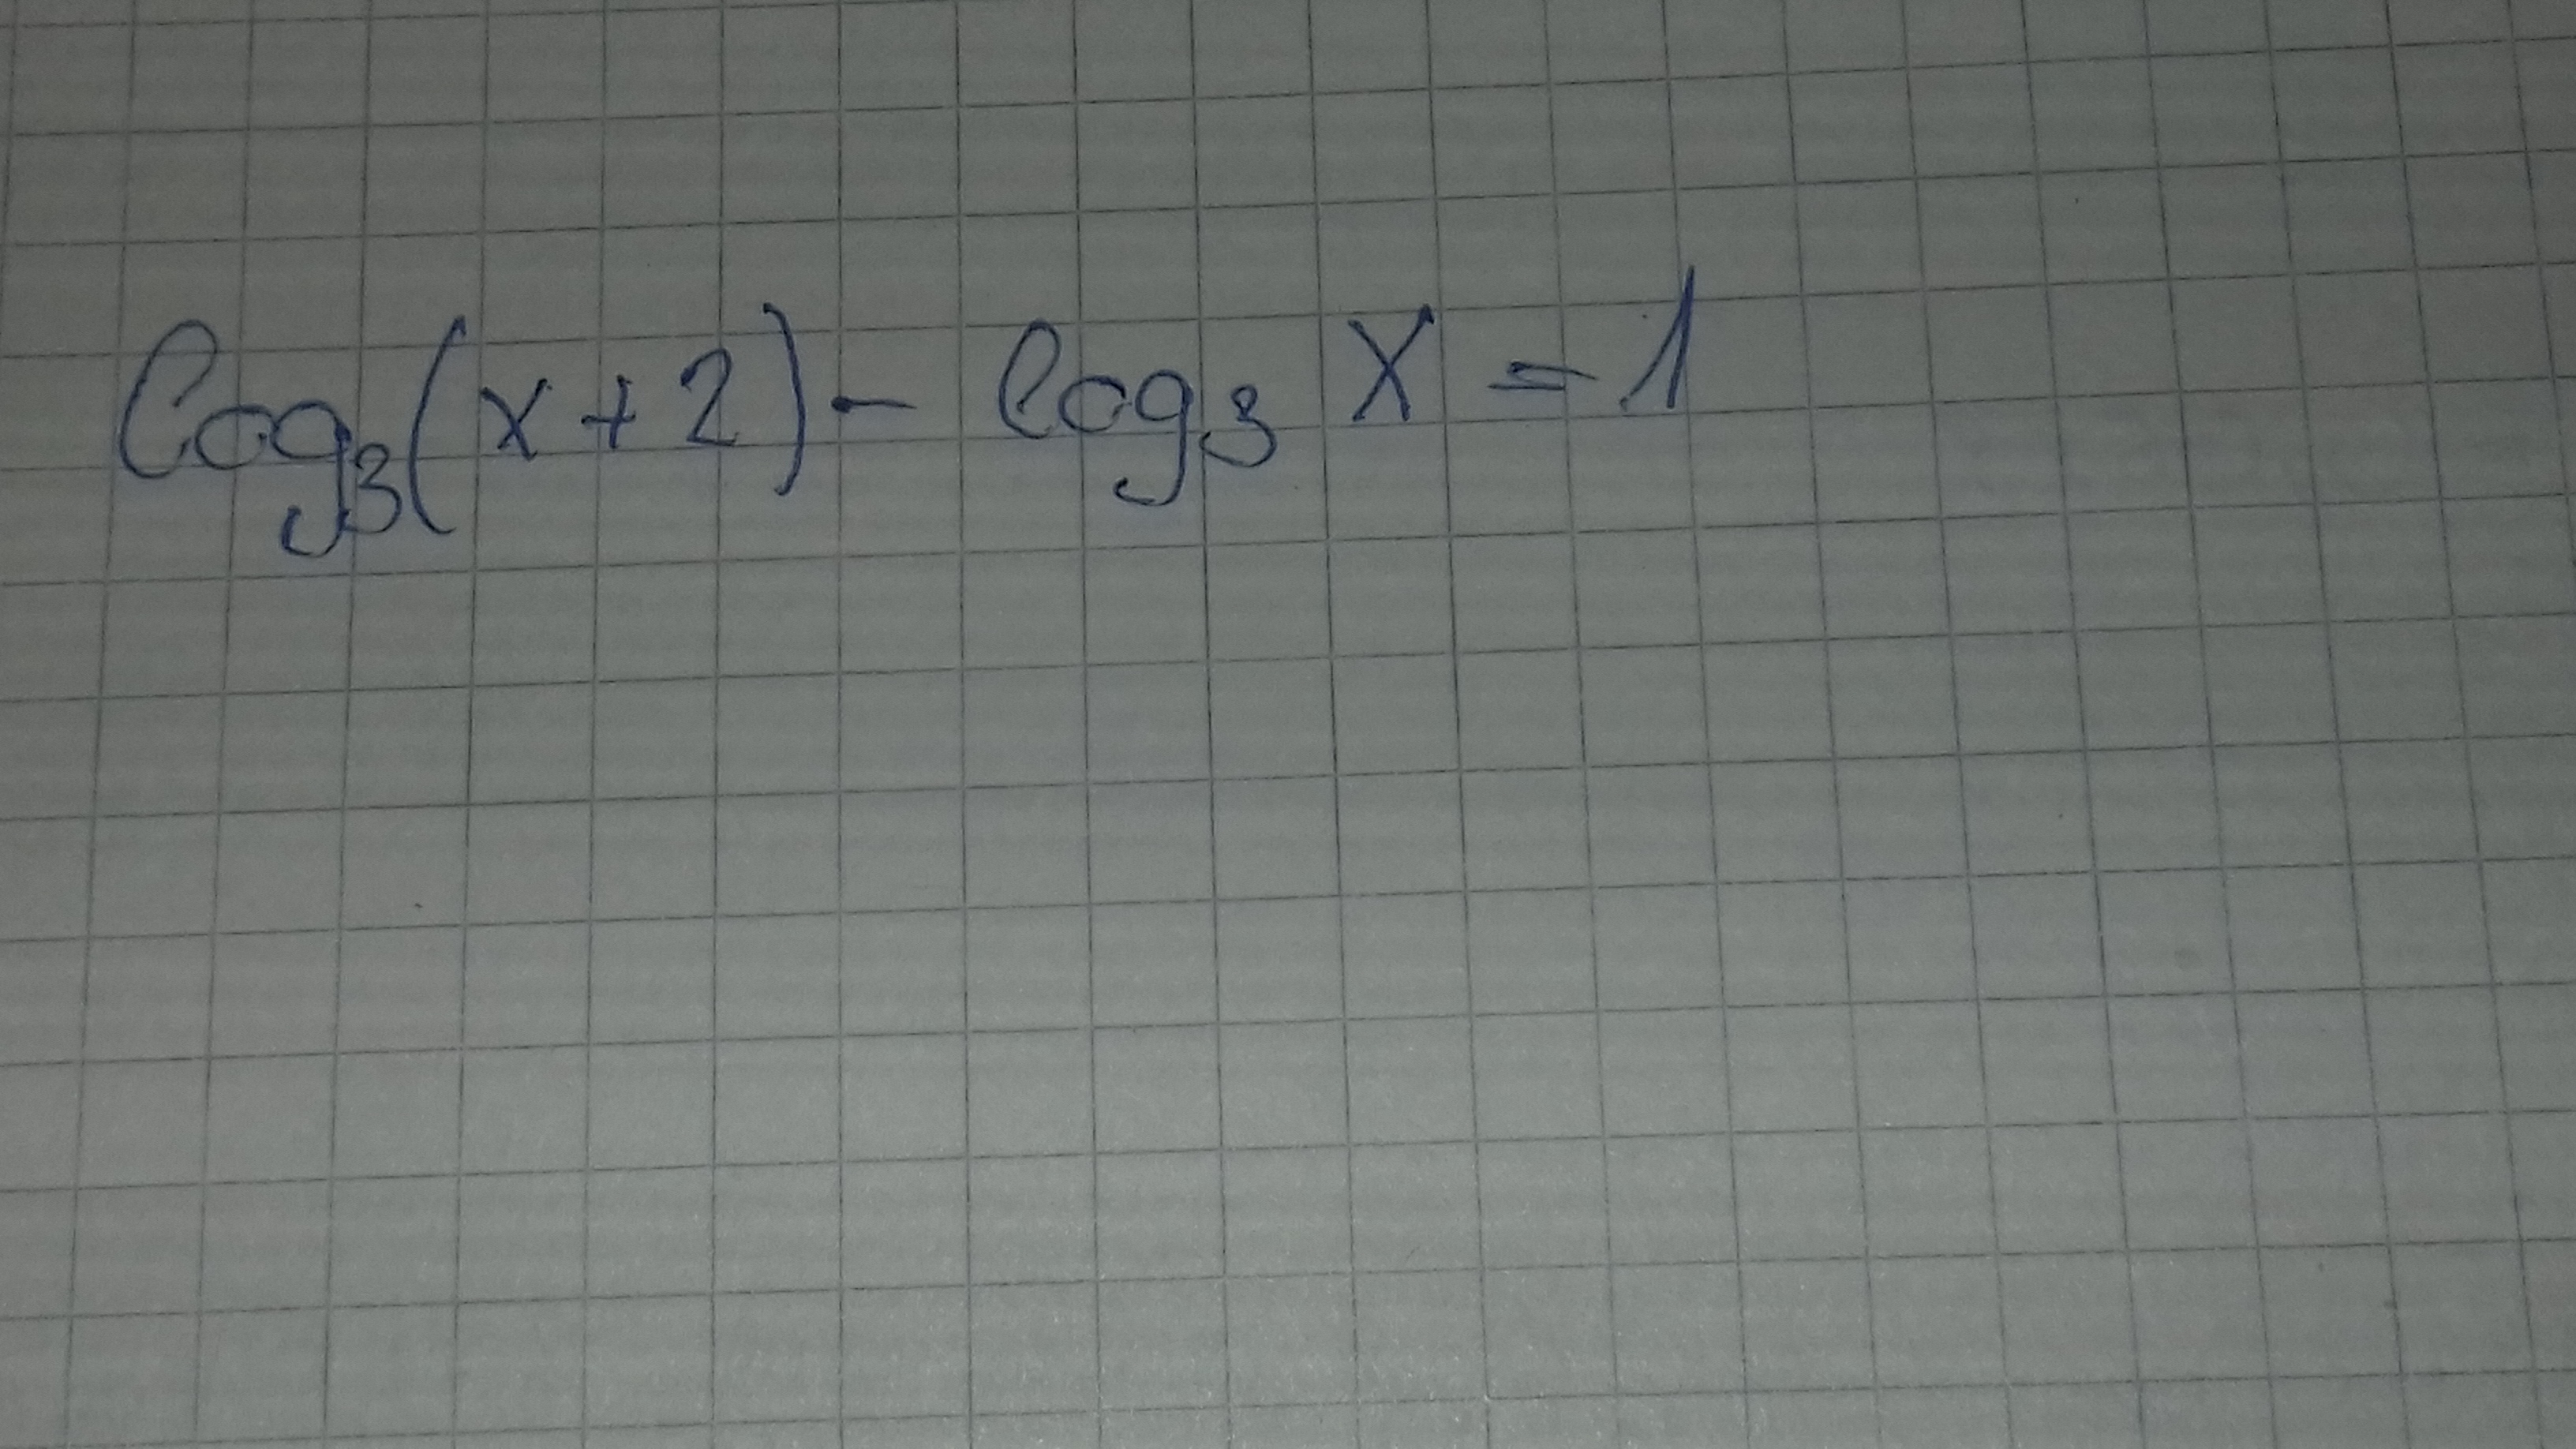 log₃(x+2) - log₃ x = 1